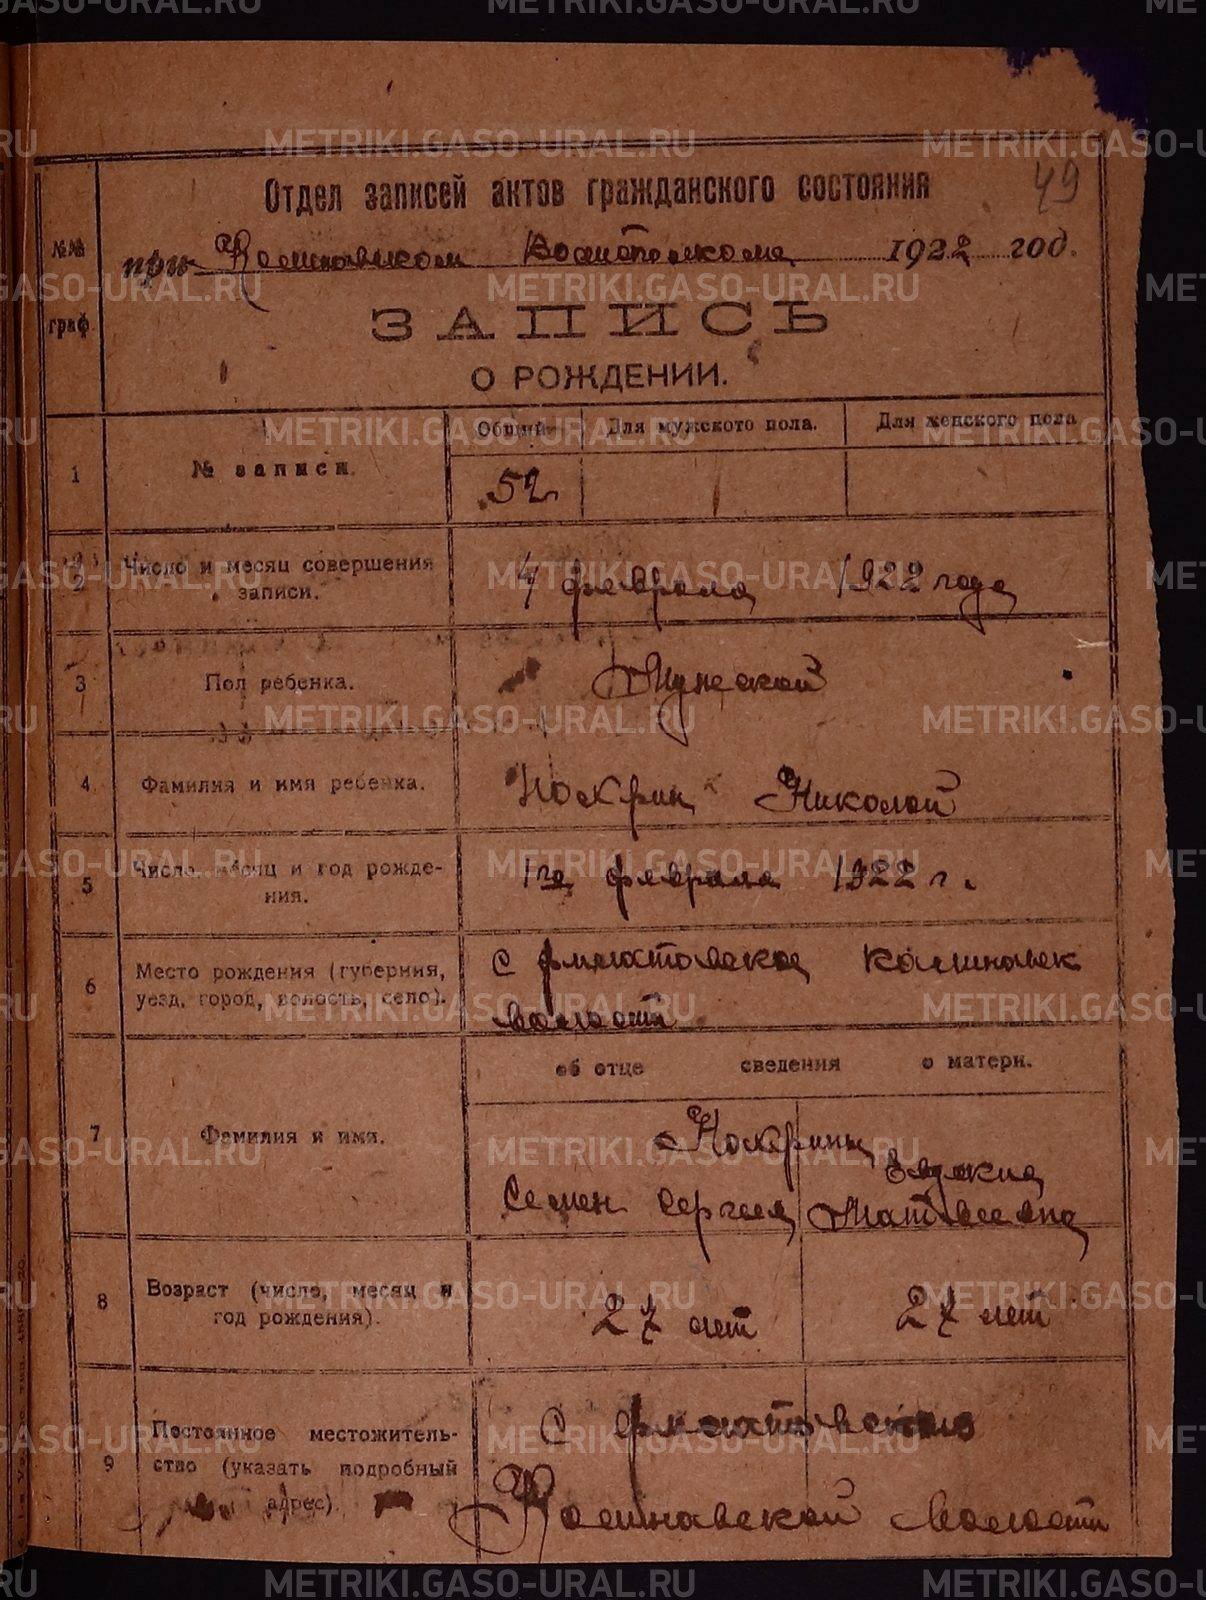 METRIKI.GASO-URAL.RU
49
Отдел записей актов гражданского состояния
№№ граф.
при Калиновском Волисполкоме 1922 год.
ЗАПИСЬ
О РОЖДЕНИИ.
Общий Для мужского пола. Для женского пола
1 № записи. 52
2 Число и месяц совершения записи. 4 февраля 1922 года
3 Пол ребенка. Мужской
4 Фамилия и имя ребенка. Похрин Николай
5 Число, месяц и год рождения. 1го февраля 1922 г.
6 Место рождения (губерния, уезд, город, волость, село). С Калиновск
волости
об отце сведения о матери.
7 Фамилия и имя. Похрины
Семен Сергеев Матвеевна
8 Возраст (число, месяц и год рождения). 27 лет 27 лет
9 Постоянное местожительство (указать подробный адрес). С
Калиновской волости